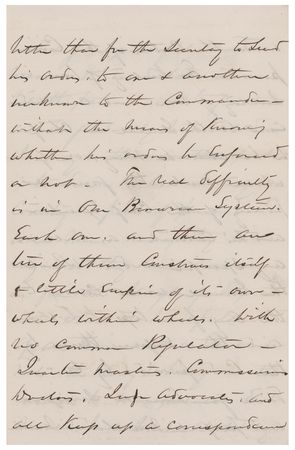 better than for the Secretary to Send
his orders, to one & another
unknown to the Commander —
without the means of Knowing
whether his orders be Enforced
or not. The real difficulty
is in Our Bureau System.
Each one. and there are
ten of them Construes itself
a little Empire of its own —
wheels within wheels. With
no common Regulator —
Quarter masters, Commissaries
Doctors, Judge advocates, and
all Keep up a correspondence